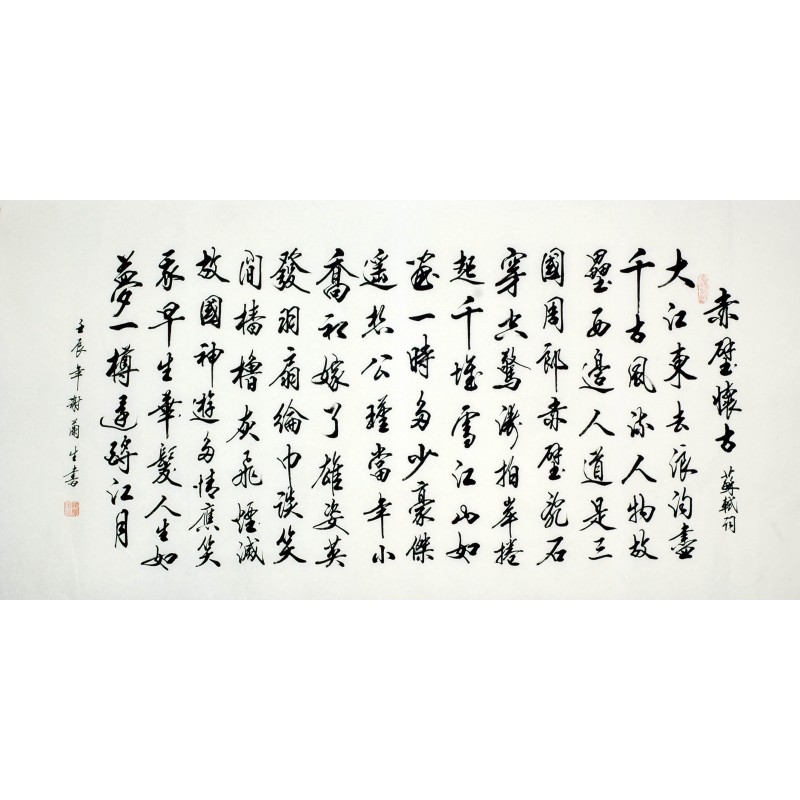 赤壁懷古 蘇軾詞
大江東去浪淘盡
千古風流人物故
壘西邊人道是三
國周郎赤壁亂石
穿空驚濤拍岸捲
起千堆雪江山如
畫一時多少豪傑
遙想公瑾當年小
喬初嫁了雄姿英
發羽扇綸巾談笑
間檣櫓灰飛煙滅
故國神遊多情應笑
我早生華髮人生如
夢一樽還酹江月
壬辰年謝生書